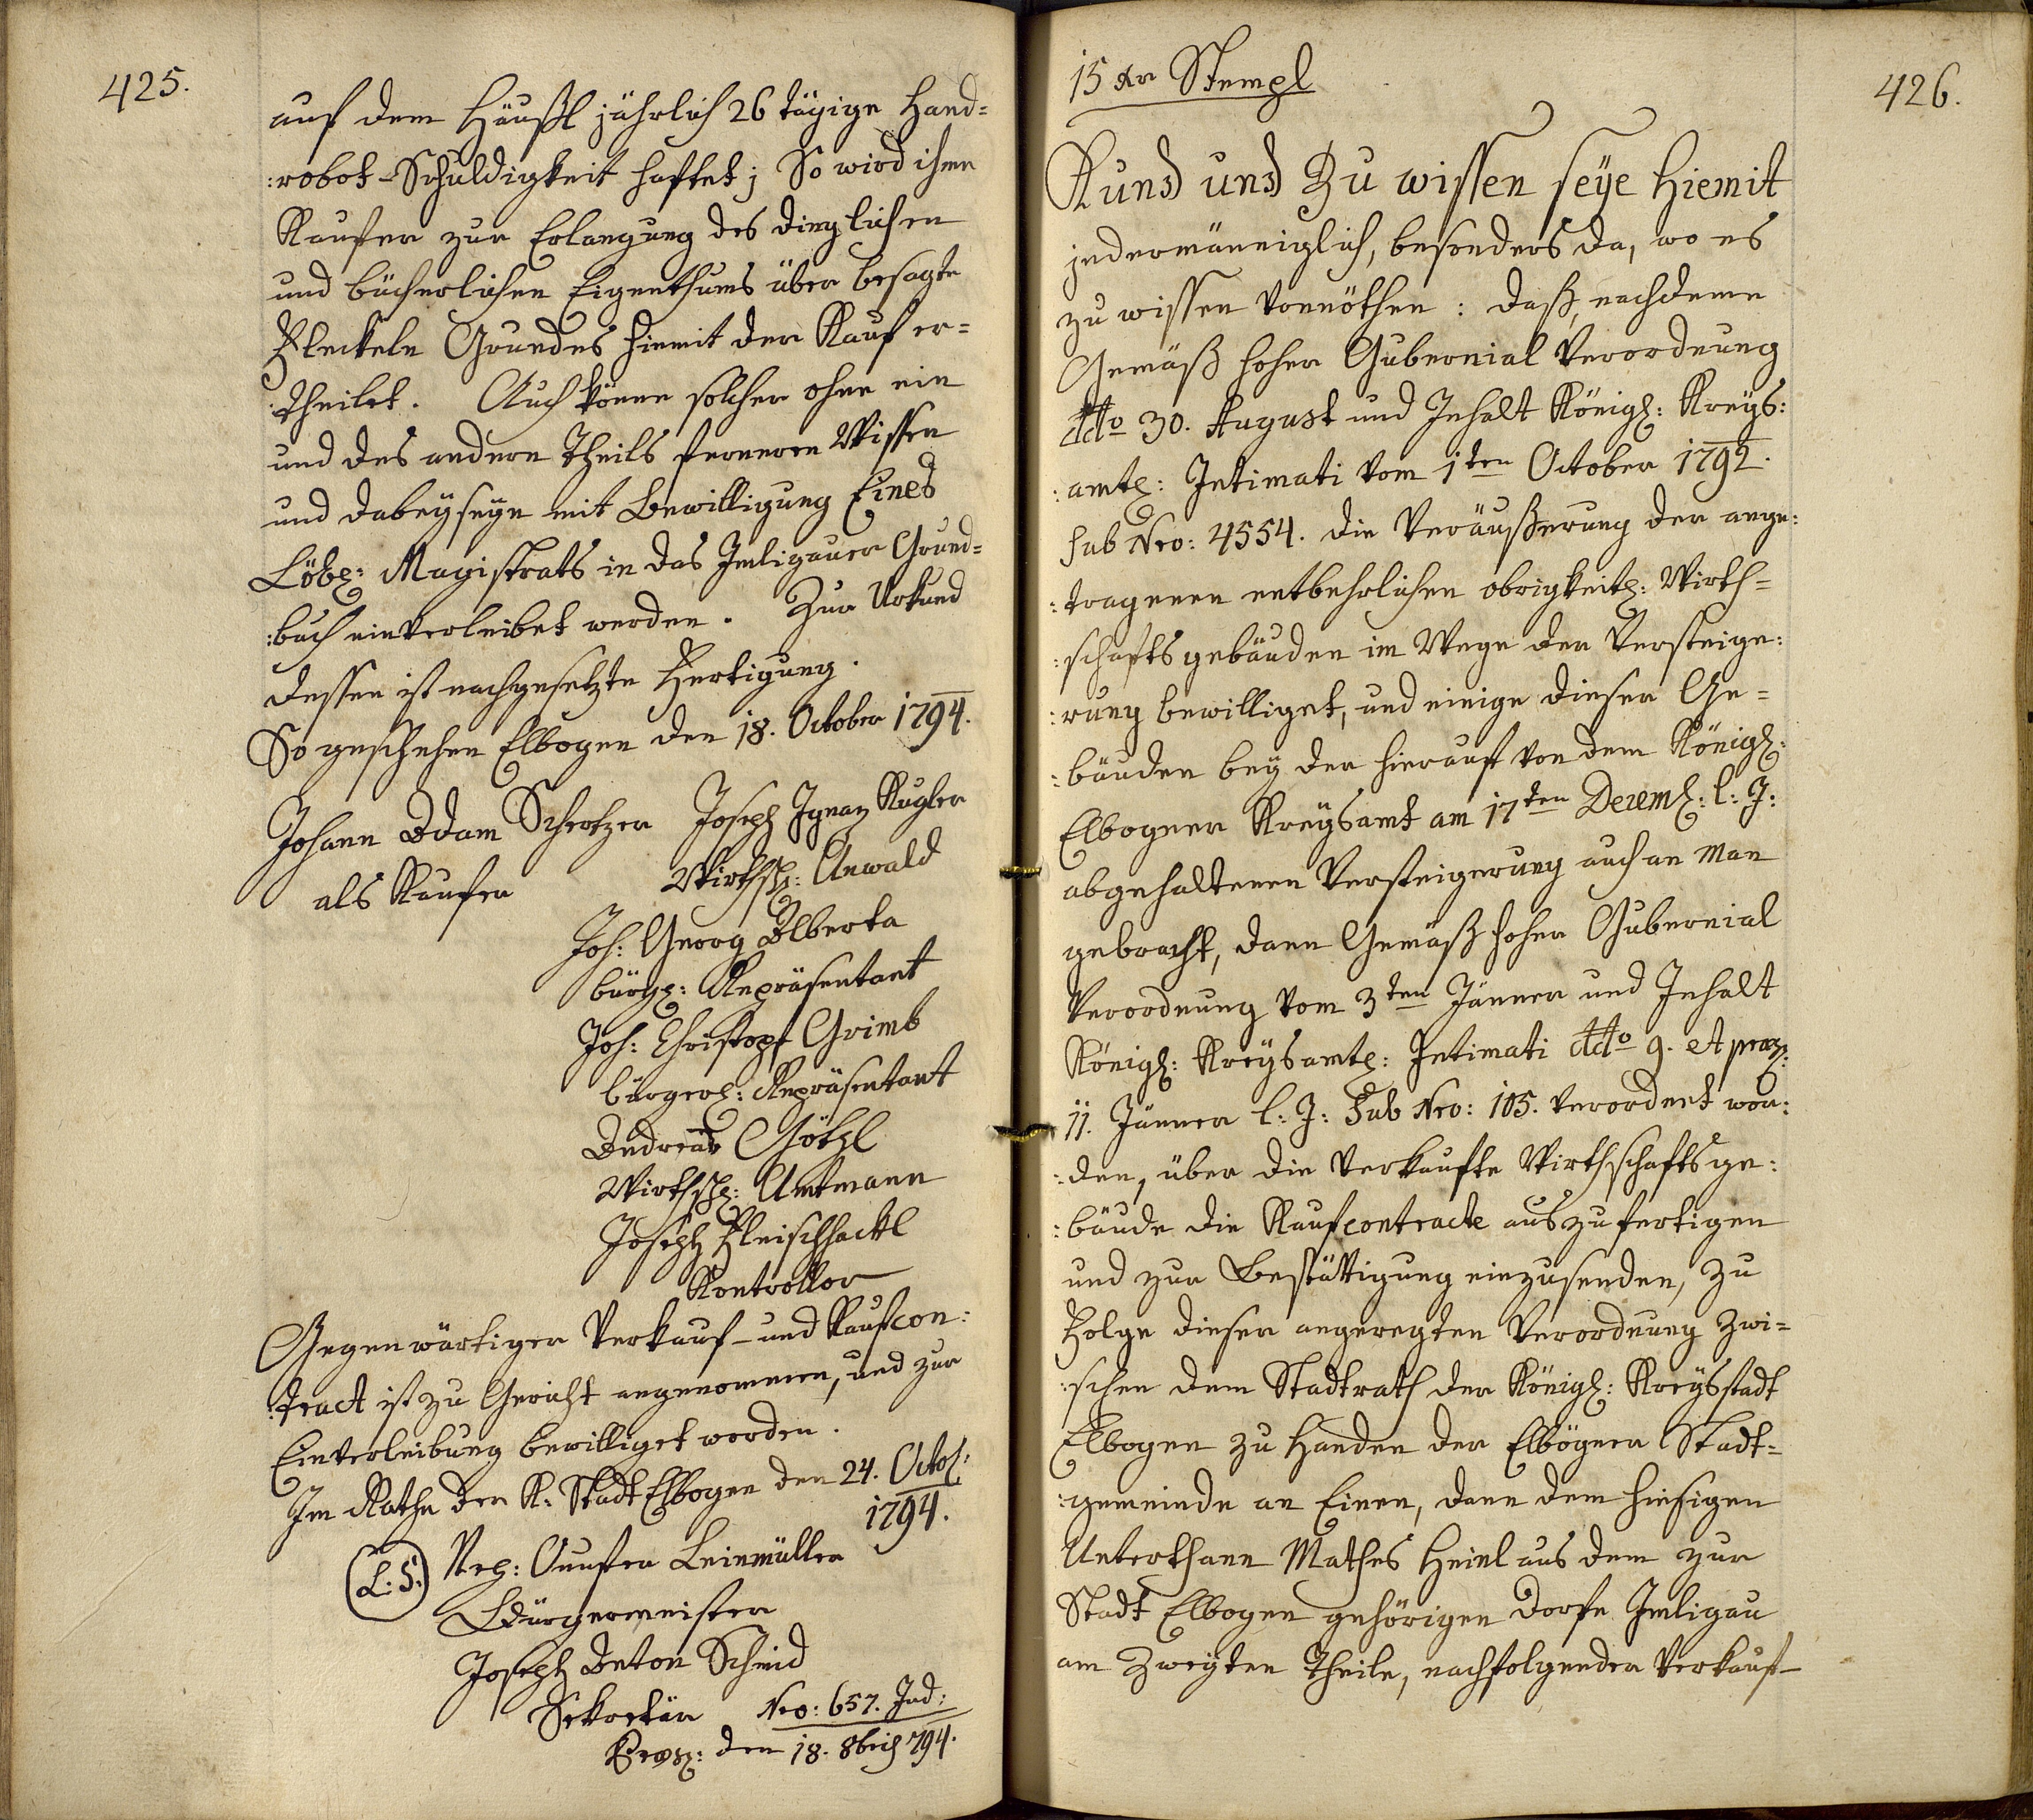 425.
auf dem Häußl jährlich 26 tägige Hand=
:robot-Schuldigkeit haftet; So wird ihme
Kaufer zur Erlangung des dinglichen
und bücherlichen Eigenthums über besagte
Fleckeln Grundes hiemit der Kauf er=
:theilet. Auch könne solcher ohne ein
und des andern Theils ferneren Wissen
und dabeyseyn mit Bewilligung Eines
Löbl: Magistrats in das Imligauer Grund=
:buch einverleibet werden. Zur Urkund
dessen ist nachgesetzte Fertigung.
So geschehen Elbogen den 18. October 1794.
Johann Adam Scherzer Joseph Ignaz Kugler
als Kaufer Wirthsch: Anwald
Joh: Georg Alberta
bürgl: Repräsentant
Joh: Christoph Grimb
bürgerl: Repräsentant
Andreas Götzl
Wirthschl: Amtmann
Joseph Fleischhackl
Kontrollor
Gegenwärtiger Verkauf- und Kaufcon:
:tract ist zu Gericht angenommen, und zur
Einverleibung bewilliget worden.
Im Rathe der K: Stadt Elbogen den 24. Octob:
1794.
(L: S:) Leinmüller
Bürgermeister
Joseph Anton Schmid
Sekretär Nro: 657. Jud:
den 18. 8bris 794.
15 Kr Stempl
426.
Kund und Zu wissen seye hiemit
jedermänniglich, besonders da, wo es
zu wissen vonnöthen: daß, nachdeme
Gemäß hoher Gubernial Verordnung
ddto 30. August und Inhalt Königl: Kreys:
:amtl: Intimati vom 1ten October 1792.
sub Nro: 4554. die Veräußerung der ange:
:tragenen entbehrlichen obrigkeitl: Wirth=
:schaftsgebäuden im Wege der Versteige:
:rung bewilliget, und einige dieser Ge=
:bäuden bey der hierauf von dem Königl:
Elbogner Kreysamt am 17ten Decemb: l: J:
abgehaltenen Versteigerung auch an Man
gebracht, dann Gemäß hoher Gubernial
Verordnung vom 3ten Jänner und Inhalt
Königl: Kreysamtl: Intimati ddto 9. et praes:
11. Jänner l: J: Sub Nro: 105. verordnet wor:
:den, über die verkaufte Wirthschaftsge:
:bäude die Kaufcontracte auszufertigen
und zur Bestättigung einzusenden, Zu
Folge dieser angeregten Verordnung zwi=
:schen dem Stadtrath der Königl: Kreysstadt
Elbogen zu Handen der Elbögner Stadt=
:gemeinde an Einen, dann dem hiesigen
Unterthann Mathes Heinl aus dem zur
Stadt Elbogen gehörigen Dorfe Imligau
am Zweyten Theile, nachfolgender Verkauf-